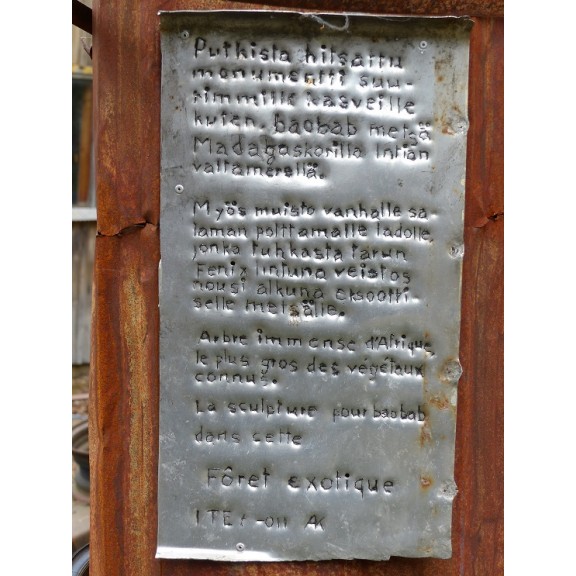 Putkista hitsattu
monumentti suu-
rimmille kasveille
kuten. baobab metsä
Madagaskarilla Intian
valtamerellä.
Myös muisto vanhalle sa-
laman polttamalle ladolle,
jonka tuhkasta tarun
Fenix lintuna veistos
nousi alkuna eksootti-
selle metsälle.
Arbre immense d'Afrique,
le plus gros des végétaux
connus.
La sculpture pour baobab
dans cette
Fôret exotique
-011 AK